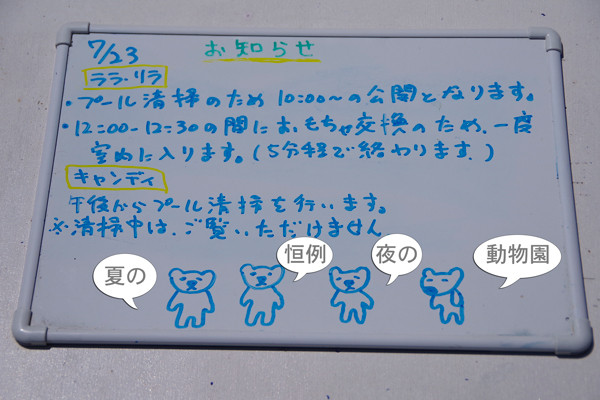 7/23
お知らせ
ララ・リラ
・プール清掃のため10:00〜の公開となります。
・12:00-12:30の間におもちゃ交換のため、一度
室内に入ります。(5分程で終わります。)
キャンディ
午後からプール清掃を行います。
※清掃中は、ご覧いただけません
夏の
恒例
夜の
動物園